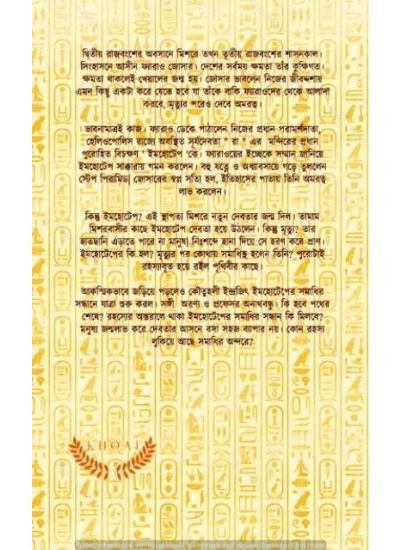 দ্বিতীয় রাজবংশের অবসানে মিশরে তখন তৃতীয় রাজবংশের শাসনকাল।
সিংহাসনে আসীন ফ্যারাও জোসার। দেশের সর্বময় ক্ষমতা তাঁর কুক্ষিগত।
ক্ষমতা থাকলেই খেয়ালের জন্ম হয়। জোসার ভাবলেন নিজের জীবদ্দশায়
এমন কিছু একটা করে যেতে হবে যা তাঁকে বাকি ফ্যারাওদের থেকে আলাদা
করবে, মৃত্যুর পরেও দেবে অমরত্ব।
ভাবনামাত্রই কাজ। ফ্যারাও ডেকে পাঠালেন নিজের প্রধান পরামর্শদাতা,
হেলিওপোলিস রাজ্যে অবস্থিত সূর্যদেবতা " রা " এর মন্দিরের প্রধান
পুরোহিত বিচক্ষণ " ইমহোটেপ "কে। ফ্যারাওয়ের ইচ্ছেকে সম্মান জানিয়ে
ইমহোটেপ সাক্কারায় গমন করলেন। বহু যত্নে ও অধ্যাবসায়ে গড়ে তুললেন
স্টেপ পিরামিড| জোসারের স্বপ্ন সত্যি হল, ইতিহাসের পাতায় তিনি অমরত্ব
লাভ করলেন।
কিন্তু ইমহোটেপ? এই স্থাপত্য মিশরে নতুন দেবতার জন্ম দিল। তামাম
মিশরবাসীর কাছে ইমহোটেপ দেবতা হয়ে উঠলেন। কিন্তু মৃত্যু? তার
হাতছানি এড়াতে পারে না মানুষ| নিঃশব্দে হানা দিয়ে সে হরণ করে প্রাণ।
ইমহোটেপের কি হল? মৃত্যুর পর কোথায় সমাধিস্থ হলেন তিনি? পুরোটাই
রহস্যাবৃত হয়ে রইল পৃথিবীর কাছে।
আকস্মিকভাবে জড়িয়ে পড়লেও কৌতূহলী ইন্দ্রজিৎ ইমহোটেপের সমাধির
সন্ধানে যাত্রা শুরু করল। সঙ্গী অরণ্য ও প্রফেসর অনাথবন্ধু। কি হবে পথের
শেষে? রহস্যের অন্তরালে থাকা ইমহোটেপের সমাধির সন্ধান কি মিলবে?
মনুষ্য জন্মলাভ করে দেবতার আসনে বসা সহজ ব্যাপার নয়। কোন রহস্য
লুকিয়ে আছে সমাধির অন্দরে?
KHOAI